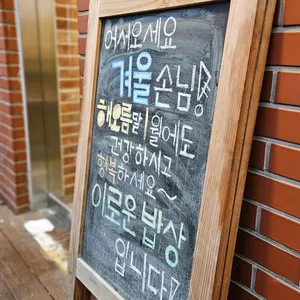 어서오세요
겨울 손님!
해오름달 1월에도
건강하시고
행복하세요~
이로운 밥상
입니다!